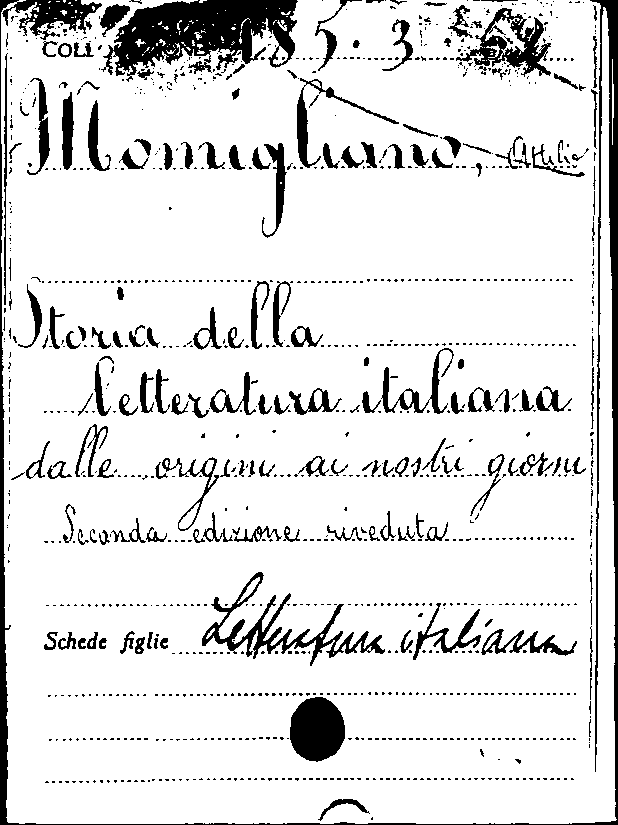 185. 3.
Momigliano, Attilio
Storia della
letteratura italiana
dalle origini ai nostri giorni
Seconda edizione riveduta
Schede figlie Letteratura italiana